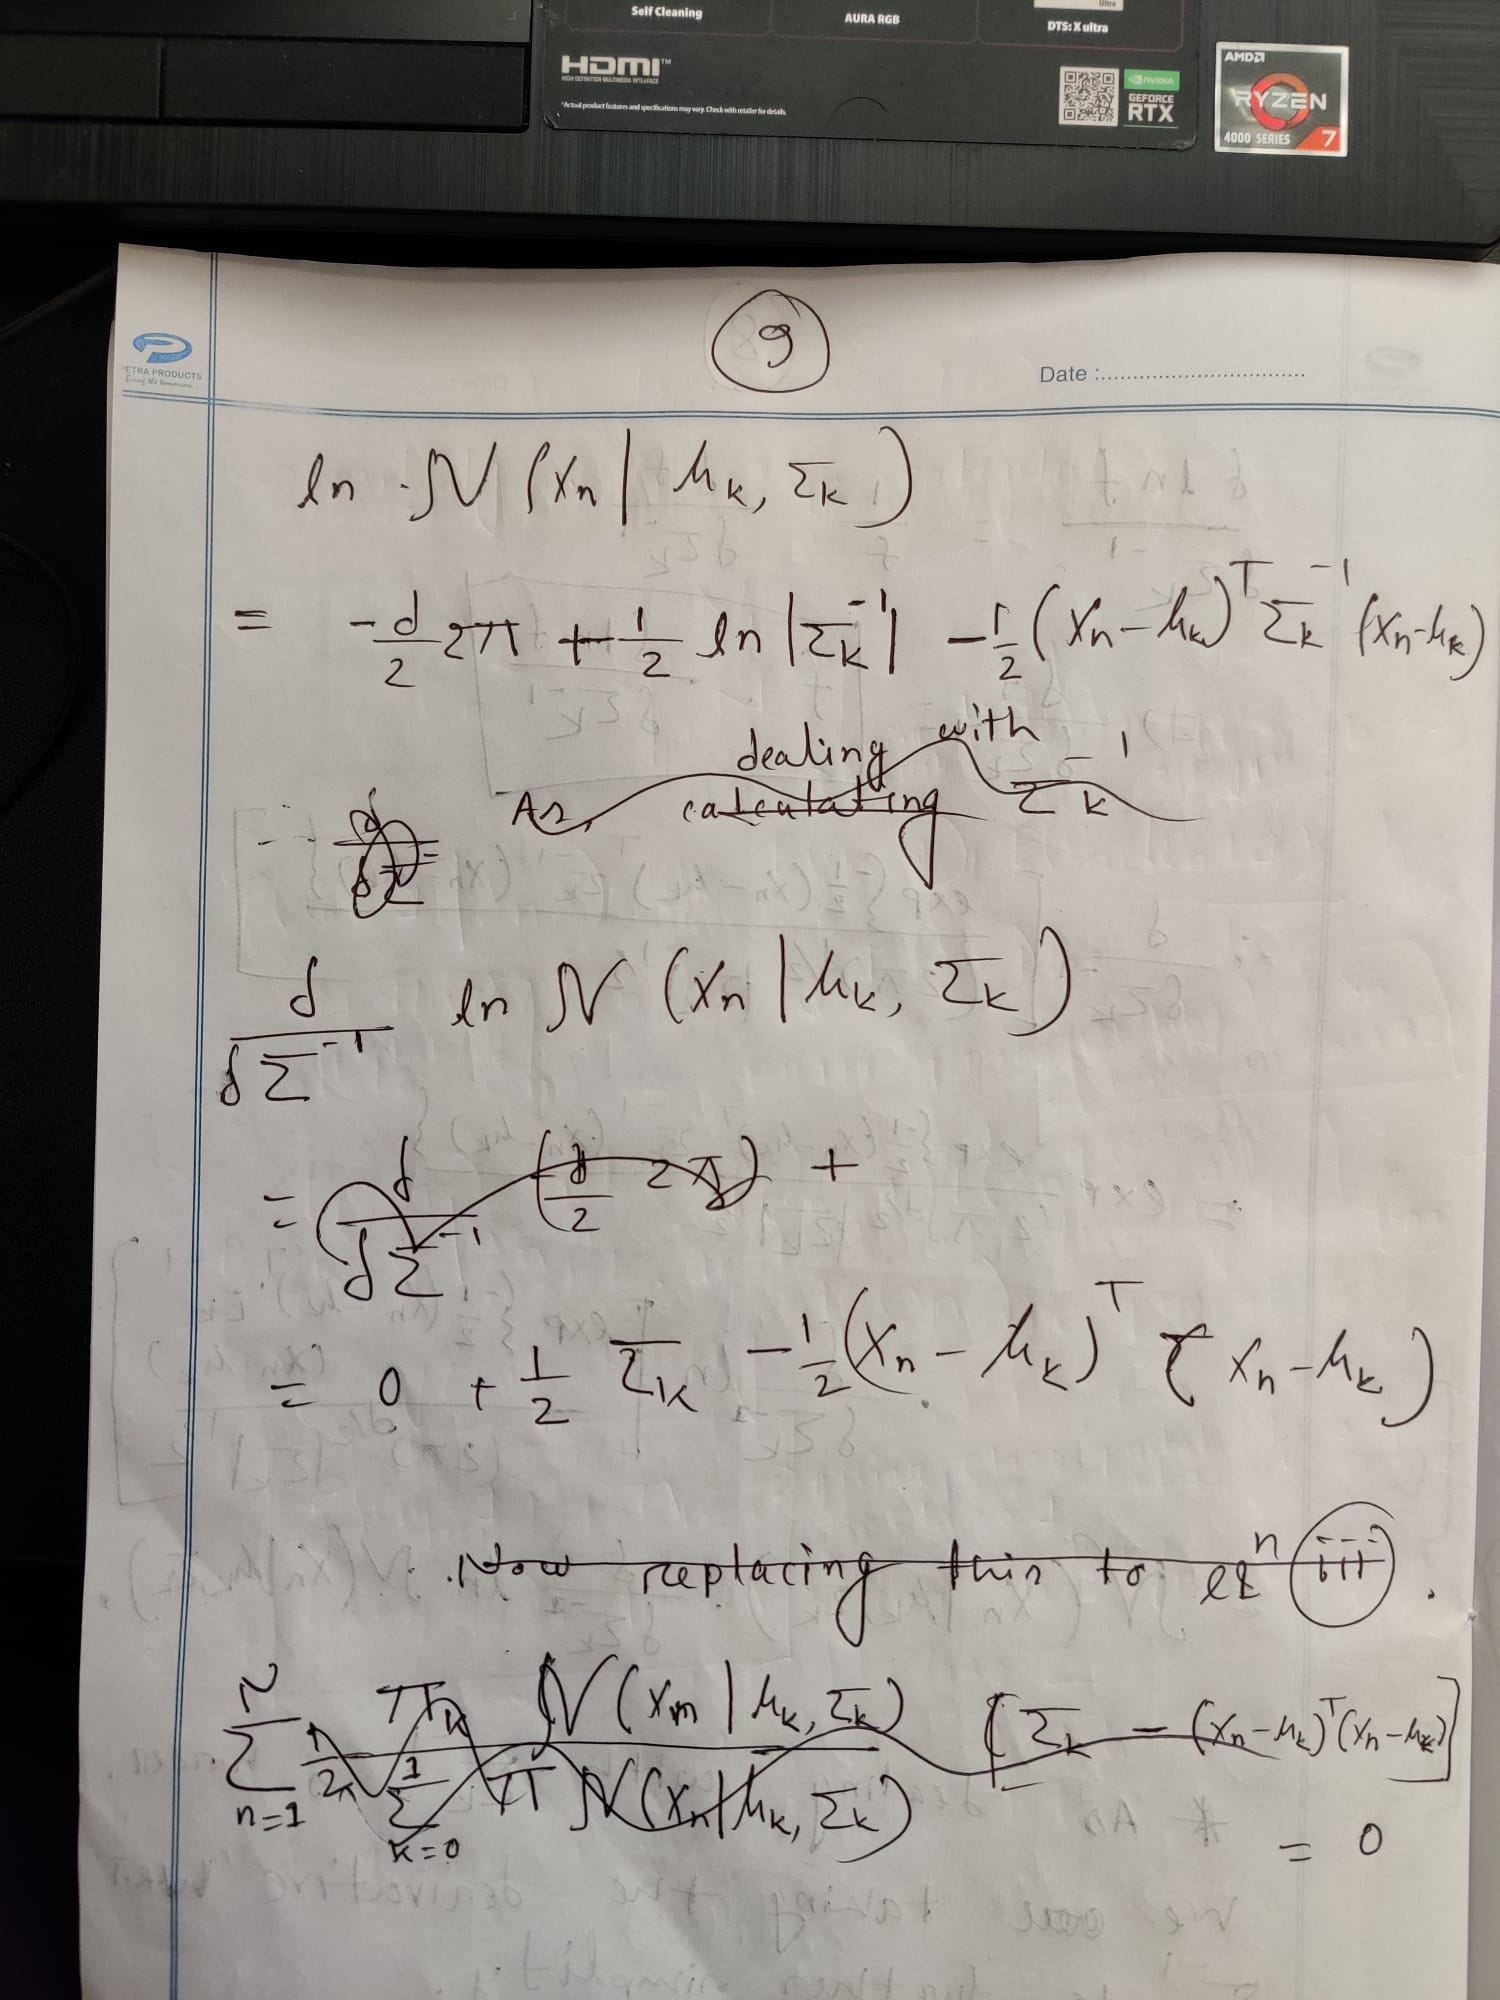 Self Cleaning
AURA RGB
Ultra
DTS:X ultra
HDMI™
HIGH-DEFINITION MULTIMEDIA INTERFACE
*Actual product features and specifications may vary. Check with retailer for details.
NVIDIA
GEFORCE
RTX
AMD
RYZEN
4000 SERIES 7
9
ETRA PRODUCTS
Bring the tomorrow...
Date :................................
ln N (xn | μk, Σk)
= -d/2 2π + 1/2 ln |Σk⁻¹| - 1/2 (xn - μk)ᵀ Σk⁻¹ (xn - μk)
dealing with
As, calculating Σk⁻¹
δ/δΣ⁻¹ ln N (xn | μk, Σk)
= δ/δΣ⁻¹ (d/2 2π) +
= 0 + 1/2 Σk - 1/2 (xn - μk)ᵀ (xn - μk)
Now replacing this to eqⁿ (iii).
N Σ n=1 1/2 πk N(xn | μk, Σk) / 1 Σ k=0 π N(xn | μk, Σk) [Σk - (xn - μk)ᵀ (xn - μk)]
= 0